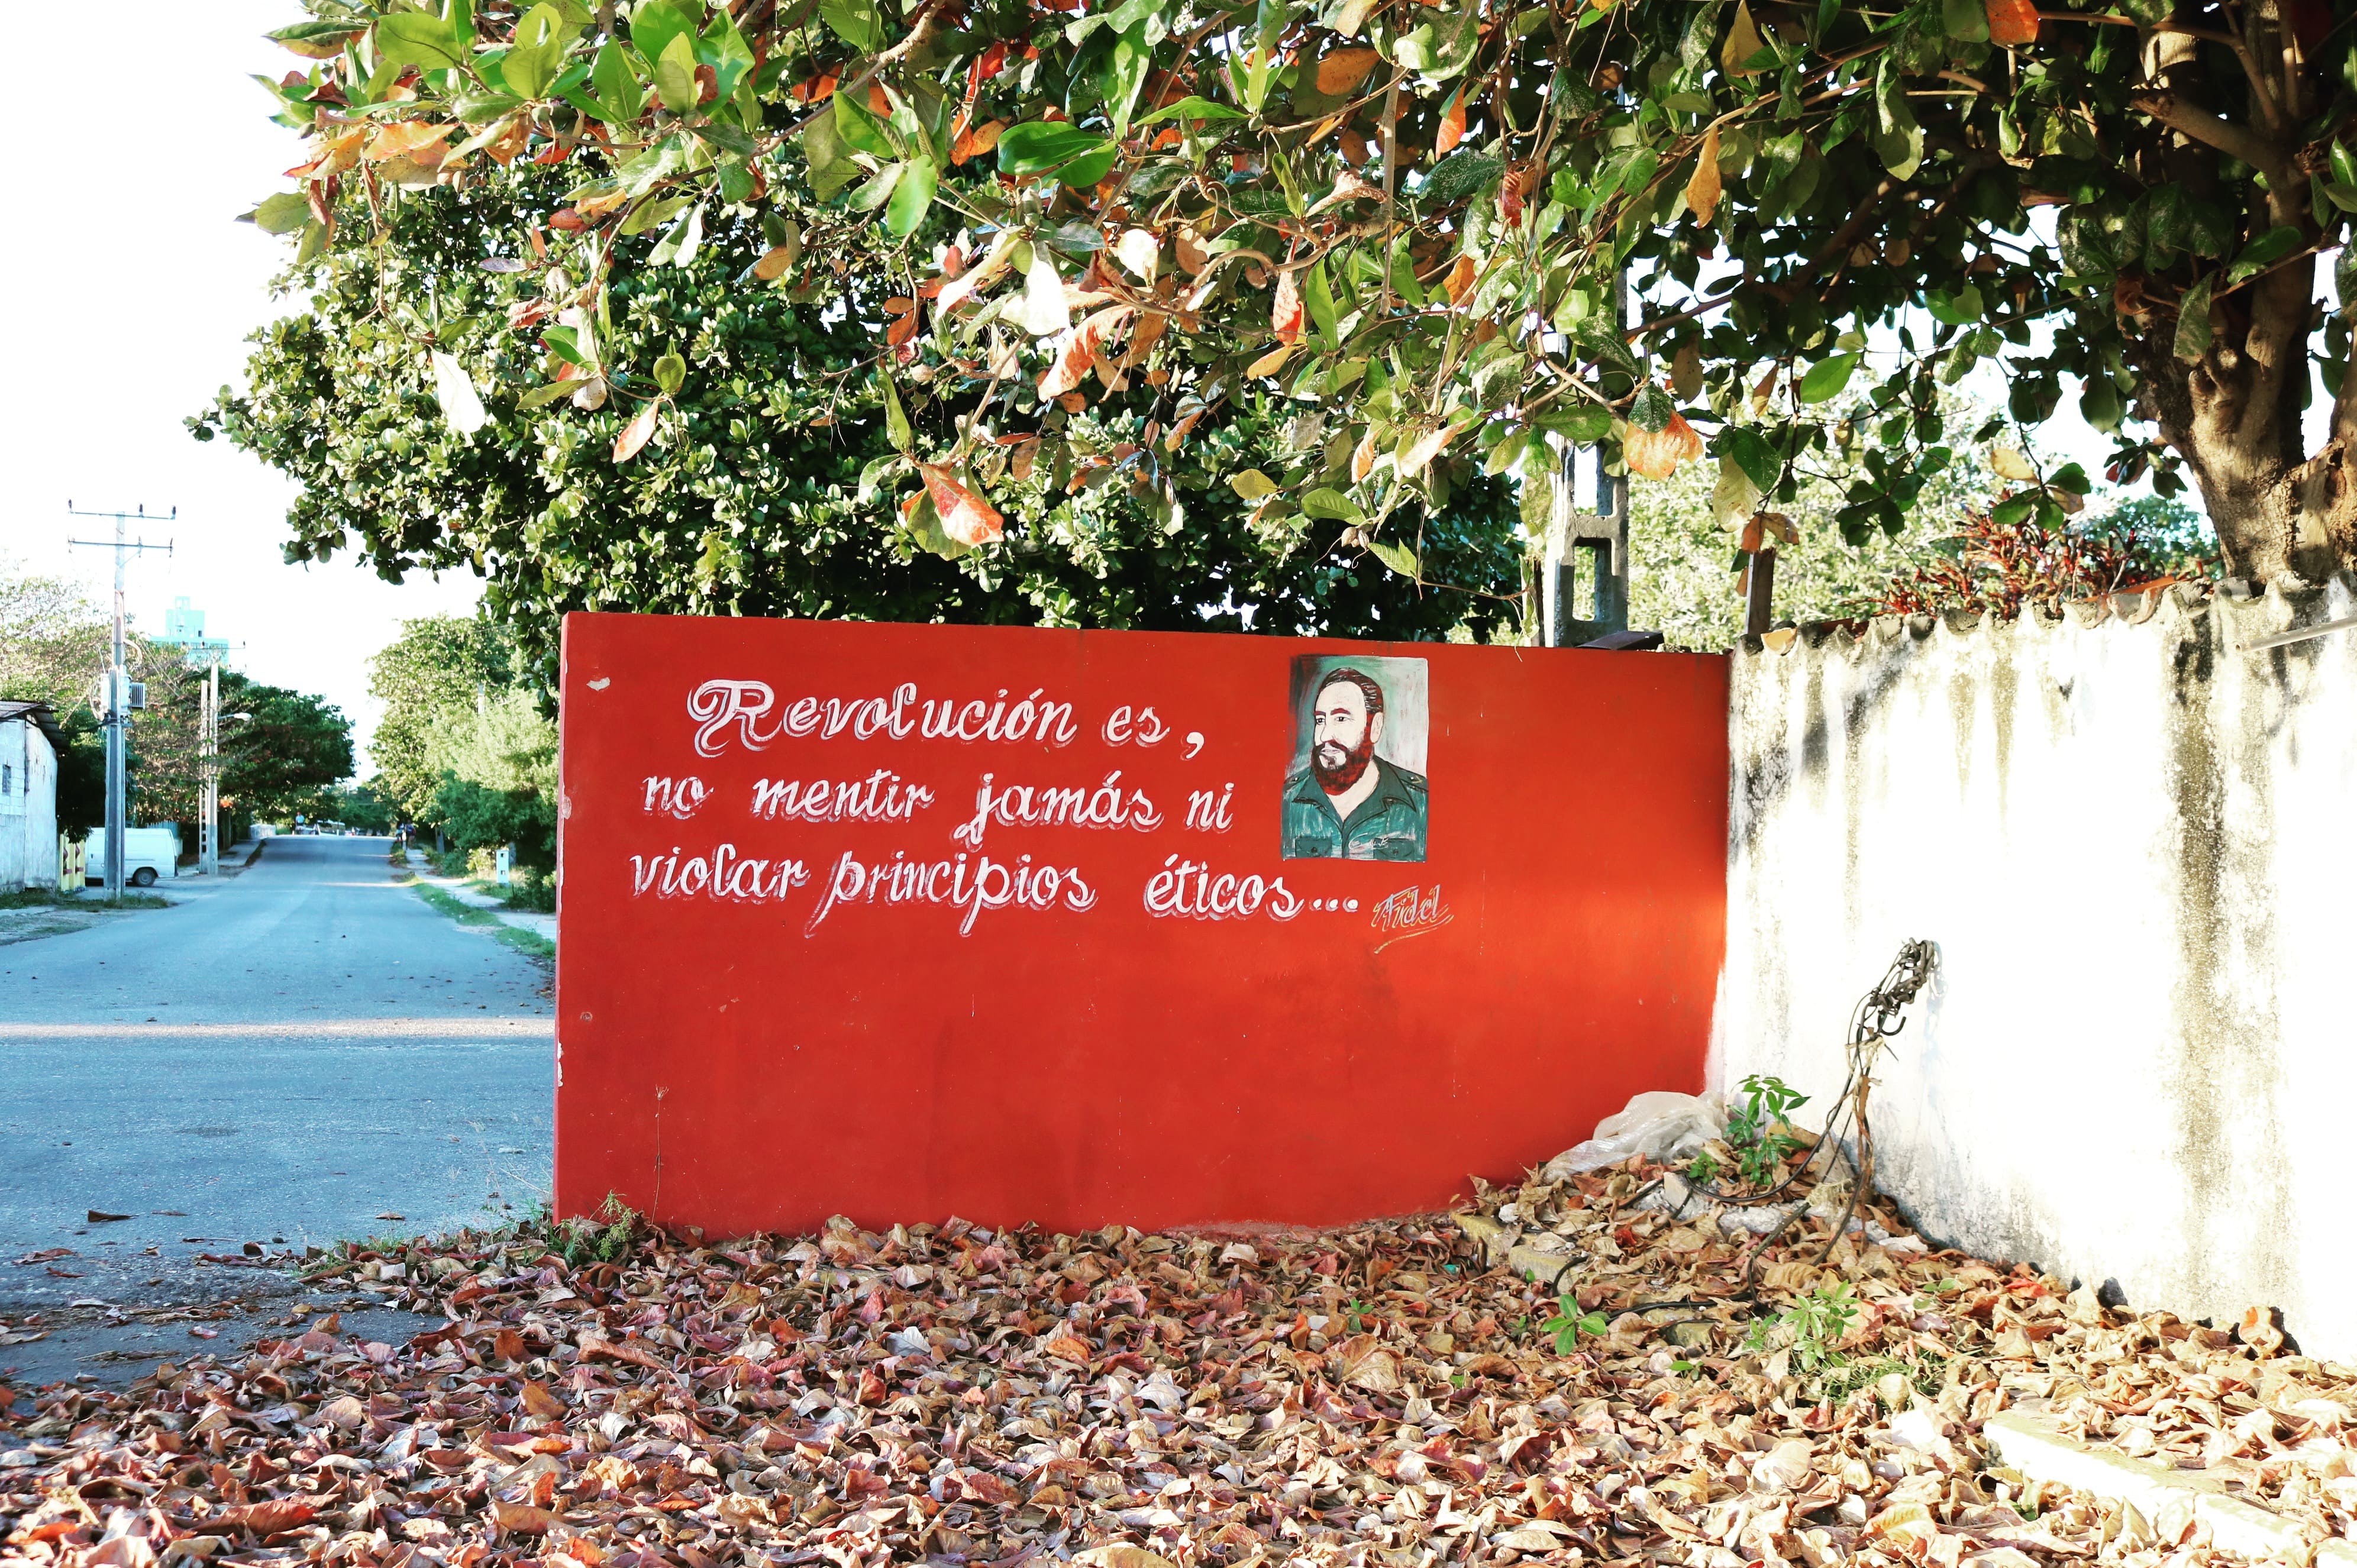 Revolución es,
no mentir jamás ni
violar principios éticos...
Fidel